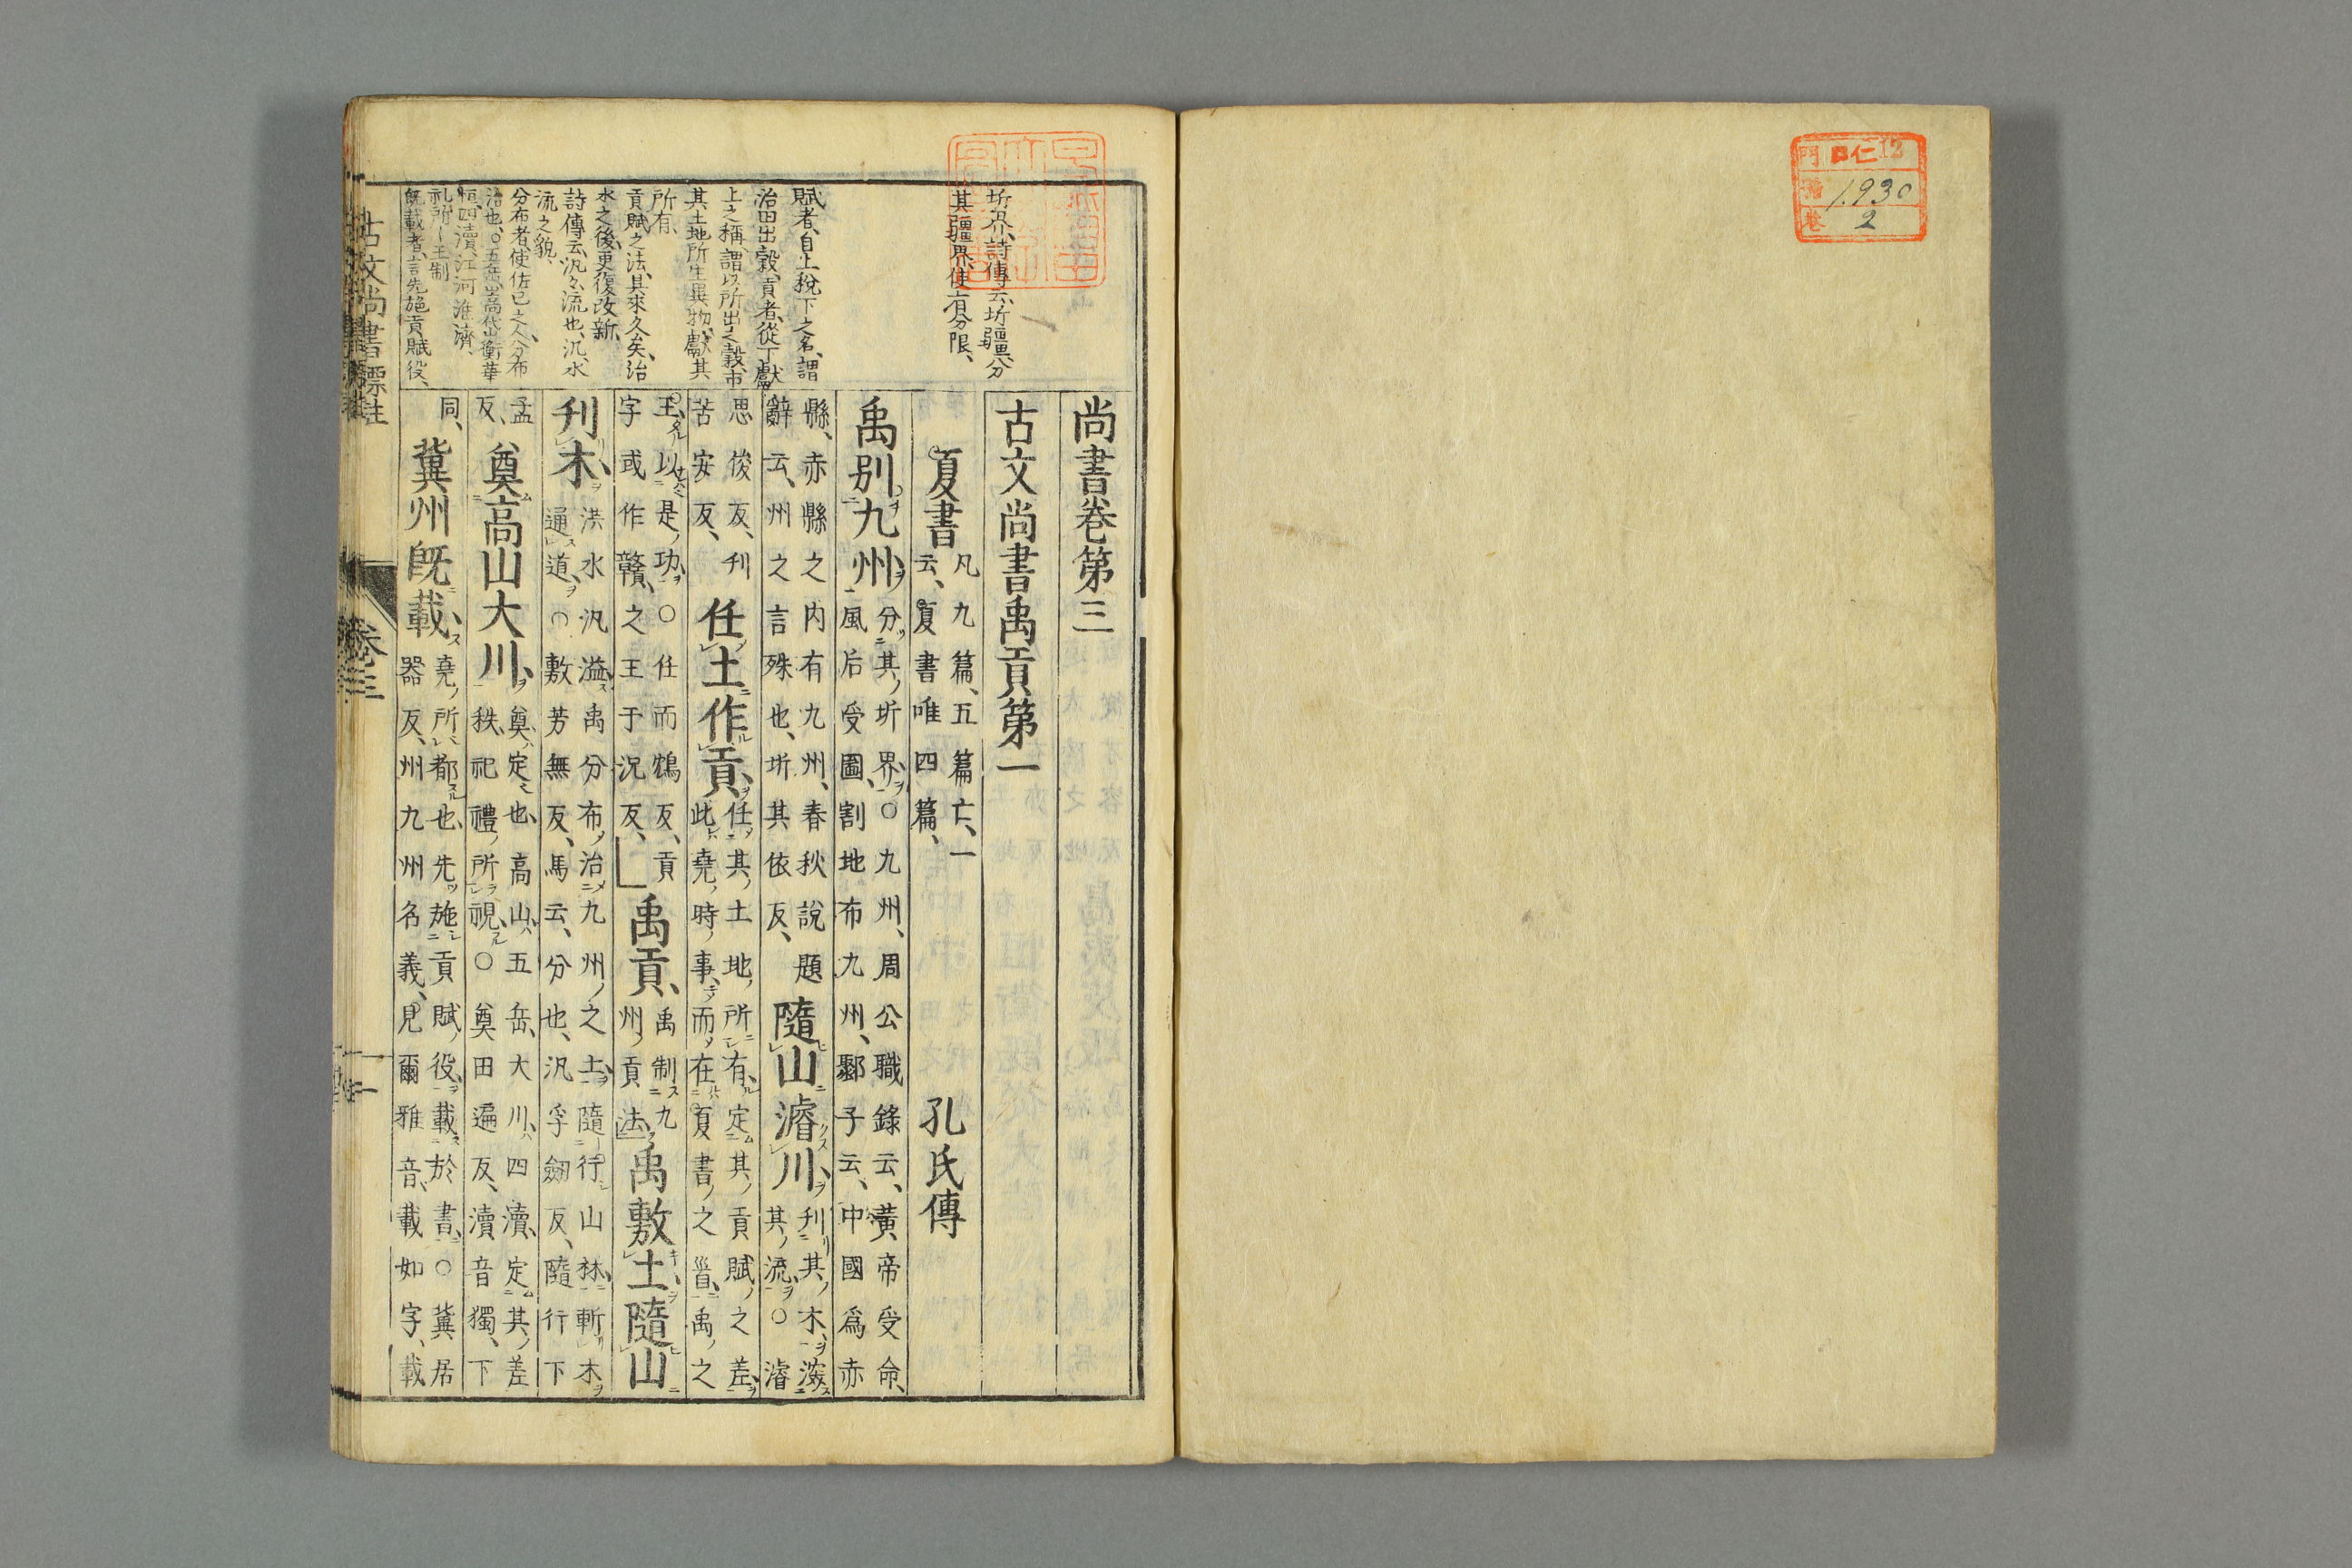 門 ロ仁 12
號 1930
卷 2
尚書卷第三
古文尚書禹貢第一
夏書 凡九篇、五篇亡、一
云、夏書唯四篇、
孔氏傳
禹別九州 分其圻界○九州、周公職錄云、黃帝受命、
風后受圖、割地布九州、鄒子云、中國為赤
縣、赤縣之內有九州、春秋說題
辭云、州之言殊也、圻其依反、
隨山濬川、刊其木、深
其流○濬
思俊反、刊
苦安反、
任土作貢、任其土地所有、定其貢賦之差、
此堯時事、而在夏書之首、禹之
王以是功○任而鴆反、貢
字或作贛、之王于況反、
禹貢、禹制九
州貢法
禹敷土隨山
刊木、洪水汎溢禹分布治九州之土隨行山林、斬木
通道、○敷芳無反、馬云、分也、汎孚劒反、隨行下
孟
反、
奠高山大川、奠定也、高山五岳、大川四瀆、定其差
秩、祀禮所視、○奠田遍反、瀆音獨、下
同、
冀州既載、堯所都也、先施貢賦役載於書○冀、居
器反、州九州名義、見爾雅音、載如字、載
圻界、詩傳云、圻疆、分
其疆界、使有分限、
賦者、自上稅下之名、謂
治田出穀、貢者、從下獻
上之稱、謂以所出之穀、市
其土地所生異物、獻其
所有、
貢賦之法、其來久矣、治
水之後、更復改新、
詩傳云、汎々流也、汎、水
流之貌、
分布者、使佐己之人分布
治也、○五岳、嵩岱衡華
恒、四瀆、江河淮濟、
禮所–王制
既載者、言先施貢賦役、
古文尚書標註
卷三
一